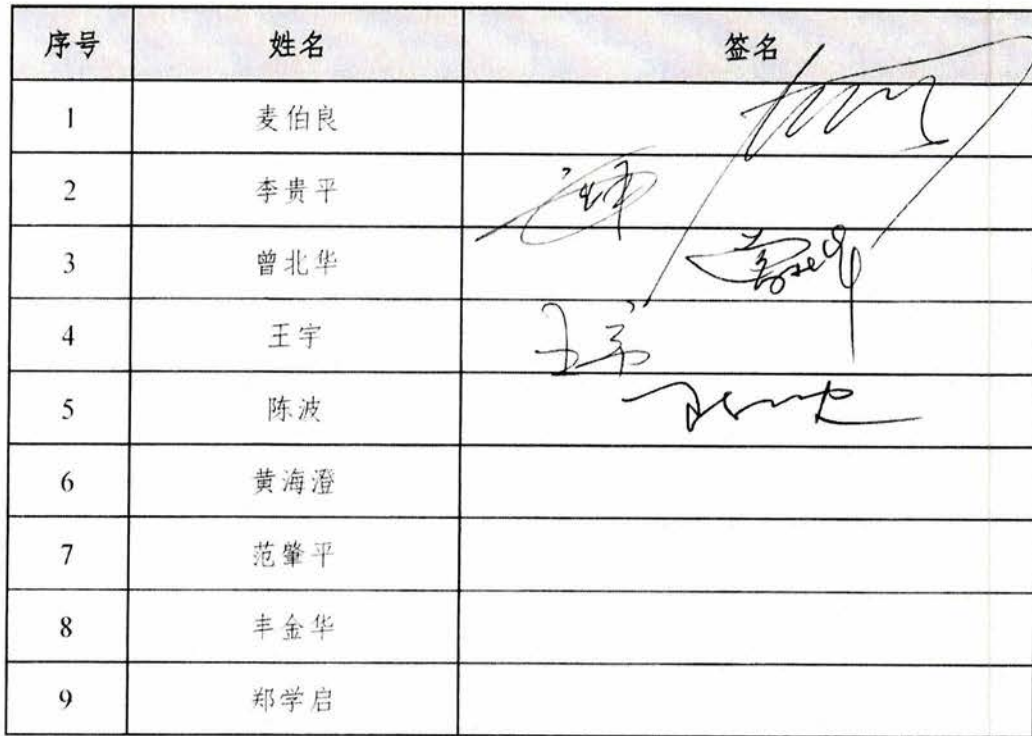 序号 姓名 签名
1 麦伯良
2 李贵平
3 曾北华
4 王宇
5 陈波
6 黄海澄
7 范肇平
8 丰金华
9 郑学启